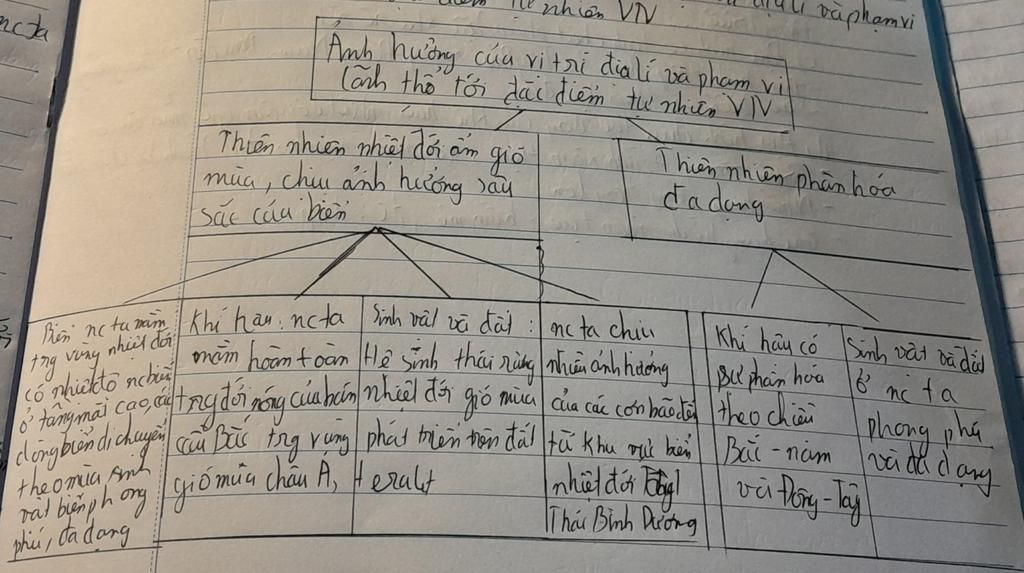 ncta
nhiên VN
địa lí và phạm vi
Ảnh hưởng của vị trí địa lí và phạm vi
lãnh thổ tới đặc điểm tự nhiên VN
Thiên nhiên nhiệt đới ẩm gió
mùa, chịu ảnh hưởng sâu
sắc của biển
Thiên nhiên phân hóa
đa dạng
Biển nc ta nằm
trg vùng nhiệt đới
có nhiệt độ nc biển
ở tầng mặt cao, các
dòng biển di chuyển
theo mùa, sinh
vật biển phong
phú, đa dạng
Khí hậu: ncta
nằm hoàn toàn
trg đới nóng của bán
cầu Bắc trg vùng
gió mùa châu Á,
Sinh vật và đất:
Hệ sinh thái rừng
nhiệt đới gió mùa
phát triển trên đất
feralit
nc ta chịu
nhiều ảnh hưởng
của các cơn bão đến
từ khu vực biển
nhiệt đới Tây
Thái Bình Dương
Khí hậu có
sự phân hóa
theo chiều
Bắc - nam
và Đông - Tây
Sinh vật và đất
ở nc ta
phong phú
và đa dạng